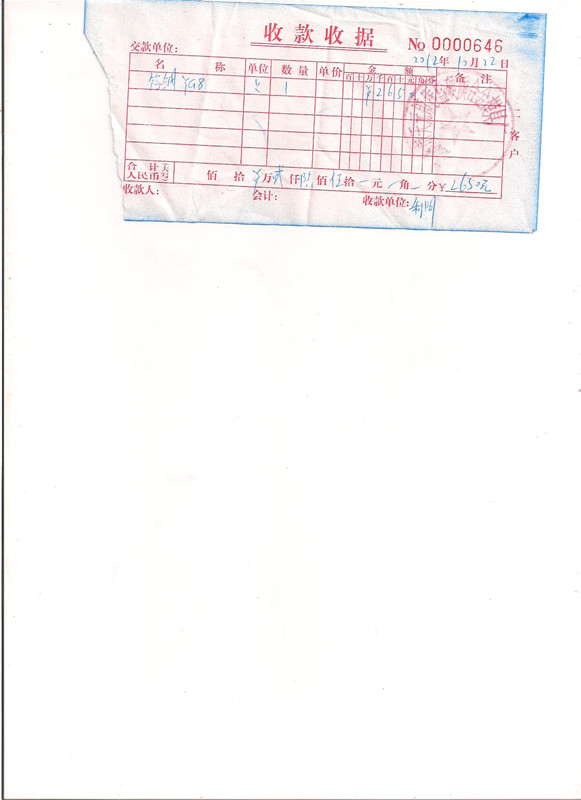 收款收据
No 0000646
交款单位：
2012年10月22日
名 称 单位 数量 单价 金额 备注
百十万千百十元角分
YG8 1 ¥265
二 客户
合计 人民币 大写 佰 拾 万 仟 佰 伍拾 元 角 分 ¥ 2650元
收款人： 会计： 收款单位：